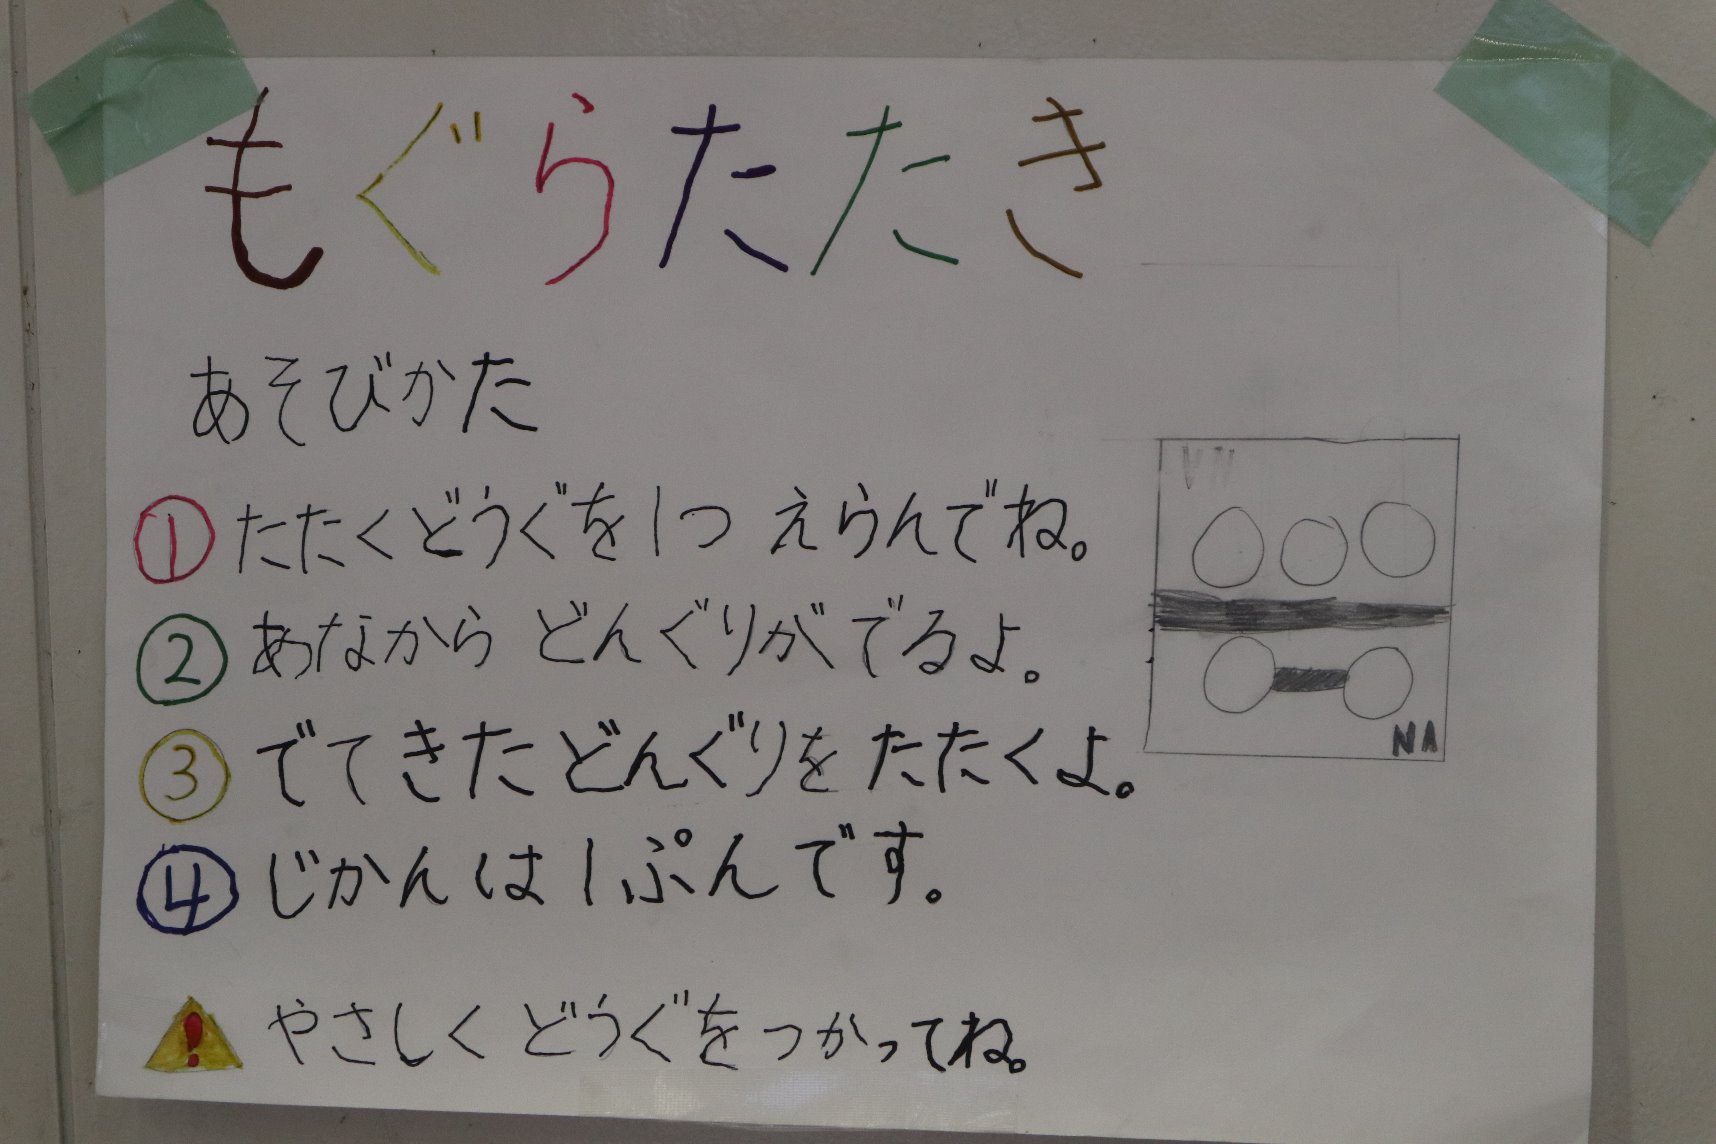 もぐらたたき
あそびかた
① たたくどうぐを1つ えらんでね。
② あなから どんぐりがでるよ。
③ でてきたどんぐりを たたくよ。
④ じかんは1ぷんです。
やさしく どうぐをつかってね。